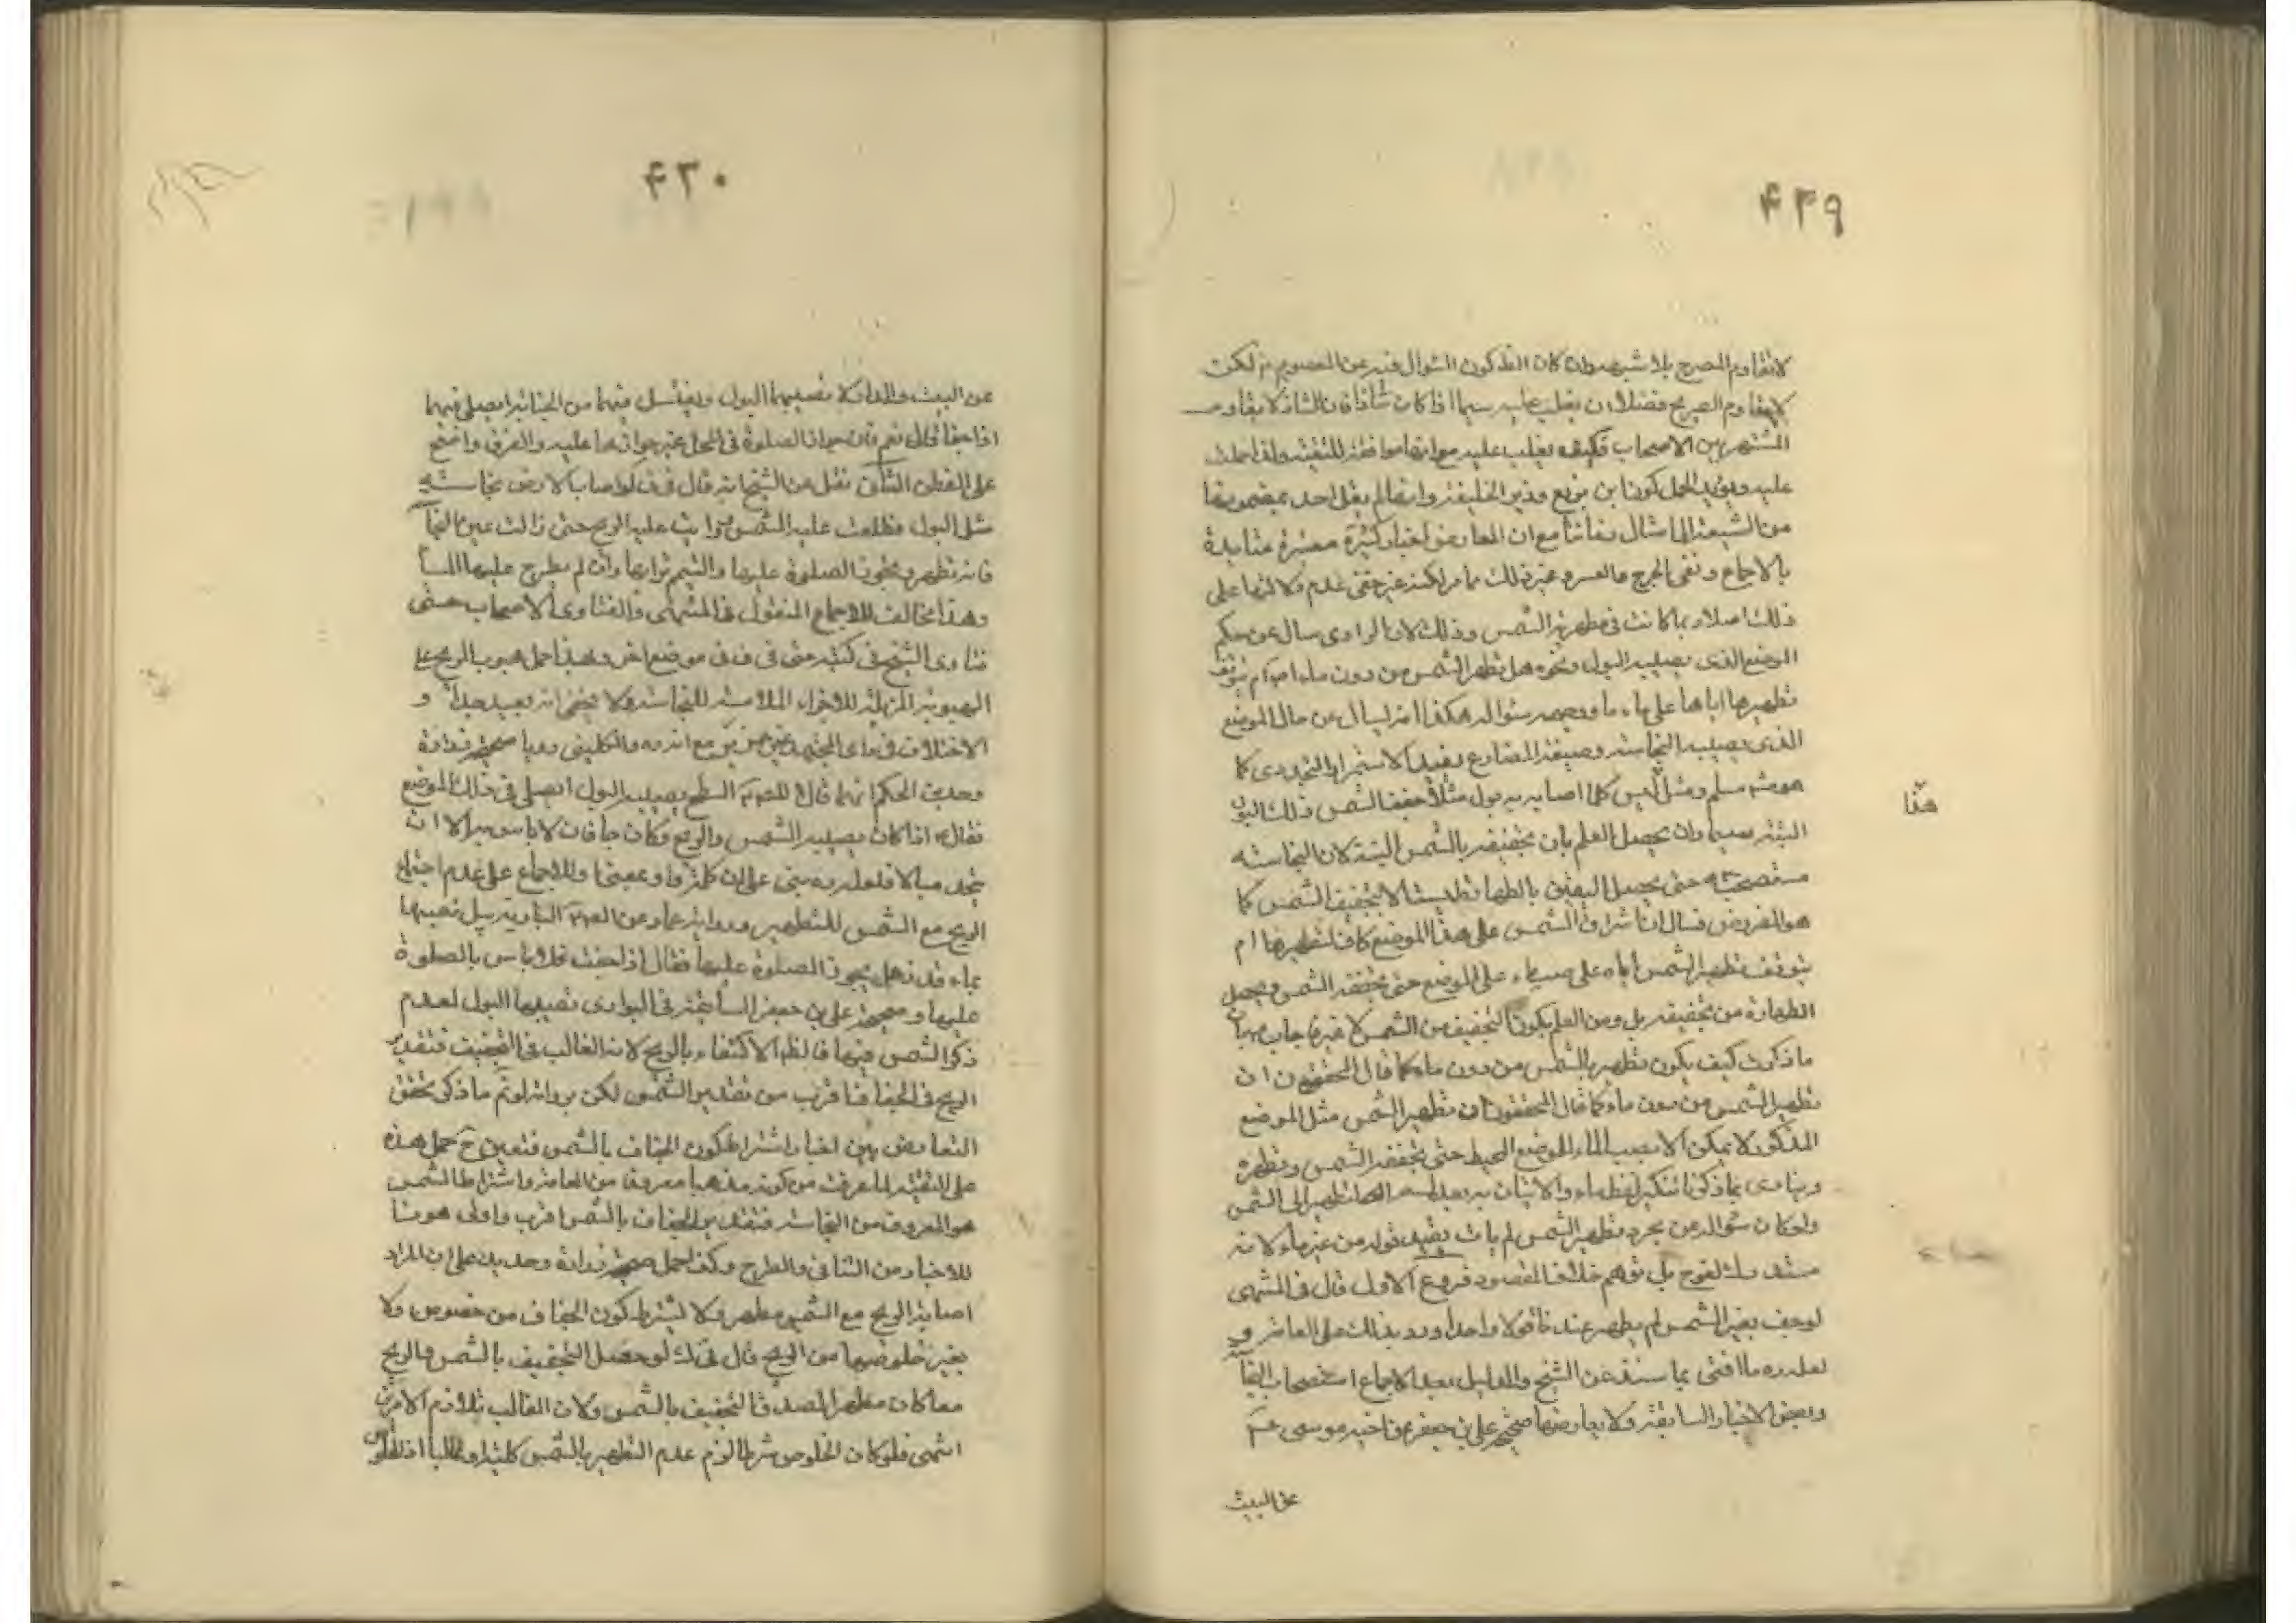 ۴۲۹
لا تقاوم الصريح بلا شبهة وان كان الظ كون السؤال فيه عن المعصوم لكن
لا يقاوم الصريح فضلا ان يغلب عليه سيما اذا كان شاذا فان الشاذ لا يقاوم
المشتهر بين الاصحاب فكيف يغلب عليه مع انها موافقة للتقية ولذا حملت
عليه ويؤيد الحمل كون ابن بزيع وزير الخليفة وانه لم يقل احد بمضمونها
من الشيعة الى امثال زماننا مع ان المعارض اخبار كثيرة معتبرة متايدة
بالاجماع ونفى الحرج والعسر وغير ذلك مما مر لكنه غير خفى عدم دلالتها على
ذلك اصلا وربما كانت فى مطهرية الشمس وذلك لان الراوى سال عن حكم
الموضع الذى يصيبه البول ونحوه هل تطهره الشمس من دون ماء ام يتوقف
تطهيرها اياها على ماء ما ووجه سئواله هكذا انه ليسال عن حال الموضع
الذى يصيبه النجاسة وصيغة المضارع يفيد الاستمرار التجددى كما
هو مسلم ومثل ليس كلما اصابه بول مثلا جففه الشمس ذلك البول
البتة سيما وان يحصل العلم بان تجفيفه بالشمس البتة لان النجاسة
مستصحبة حتى يحصل اليقين بالطهارة لا بتجفيف الشمس كما
هو المفروض فسال ان اشراق الشمس على هذا الموضع كاف لتطهيرها ام
يتوقف تطهير الشمس اياه على صب ماء على الموضع حتى يجففه الشمس ويحصل
الطهارة من تجفيفه بل ومن العلم بكون التجفيف من الشمس لا غيرها جاب بان
ما ذكرت كيف يكون تطهيره بالشمس من دون ماء كما قال المحققون ان
تطهير الشمس من دون ماء كما قال المحققون ان تطهير الشمس مثل الموضع
المذكور لا يمكن الا بصب الماء الموضع المحيط حتى تجففه الشمس وتطهره
وينادى بما ذكرنا تنكير لفظ ماء والاتيان به بعد التطهير الى الشمس
ولو كان سئواله عن مجرد تطهير الشمس لم يات بقيد قوله من غير ماء لانه
مستدرك لغو بل توهم خلاف المقصود فروع الاول قال فى المنتهى
لو جف بغير الشمس لم يطهر عندنا قولا واحدا ورد بذلك على العامة و
لعله رده ما افتى بما سنذ عن الشيخ والدليل بعد الاجماع استصحاب النجاسة
وبعض الاخبار السابقة ولا يعارضها صحيحة على بن جعفر عن اخيه موسى ع
عن البيت
هذا
۴۳۰
عن البيت والدار لا تصيبهما البول ويغتسل فيهما من الجنابة ايصلى فيهما
اذا جفا قال نعم فان جواز الصلوة فى المحل غير جوازها عليه والفرق واضح
على الفطن الثانى نقل عن الشيخ انه قال فى ف لو اصاب الارض نجاسة
مثل البول وطلعت عليه الشمس وهبت عليه الريح حتى زالت عين النجاسة
فانه تطهر ويجوز الصلوة عليها والتيمم بترابها وان لم يطرح عليها الماء
وهذا مخالف للاجماع المنقول فى المنتهى والفتاوى الاصحاب حتى
فتاوى الشيخ فى كتبه حتى فى ف فى موضع اخر وبعد احمل هبوب الريح على
الهبوبة المزيلة للاجزاء الملامسة للنجاسة ولا يخفى انه بعيد جدا و
الاختلاف فى راى المجتهد غير عزيز مع انه ره والكلينى رويا صحيحة زرارة
وحديد بن الحكم انهما قالا للص ع السطح يصيبه البول ايصلى فى ذلك الموضع
فقال ع اذا كان يصيبه الشمس والريح وكان جافا فلا باس به الا ان
يتخذ مبالا فلعله ره بنى على ان كلمة واو بمعنى او للاجماع على عدم احتياج
الريح مع الشمس للتطهير ورواية عمار عن الص ع البارية يبل قصبها
بماء قذر هل يجوز الصلوة عليها فقال اذا جفت فلا باس بالصلوة
عليها وصحيحة على بن جعفر السابقة فى البوارى تصيبها البول لعدم
ذكر الشمس فيها فالظ الاكتفاء بالريح لانه الغالب فى التجفيف فتقدير
الريح فى الجفاف اقرب من تقدير الشمس لكن يرد انه لو تم ما ذكر تحقق
التعارض بين اخبار اشتراط كون الجفاف بالشمس فتعين ح حمل هذه
على التقية لما عرفت من كونه مذهبا معروفا من العامة واشتراط الشمس
هو المعروف من النجاسة فتقدير الجفاف بالشمس اقرب واولى هو ثا
للاخبار من التنافى والطرح وكذا حمل صحيحة زرارة وحديد على ان المراد
اصابة الريح مع الشمس مطهر ولا يشترط كون الجفاف من خصوص ولا
بغير خلوصها من الريح قال فى ك لو حصل التجفيف بالشمس والريح
معا كان مطهرا لصدق التجفيف بالشمس ولان الغالب تلازم الامرين
انتهى فلو كان الخلوص شرطا لزم عدم التطهير بالشمس كلية او غالبا اذ الخلوص